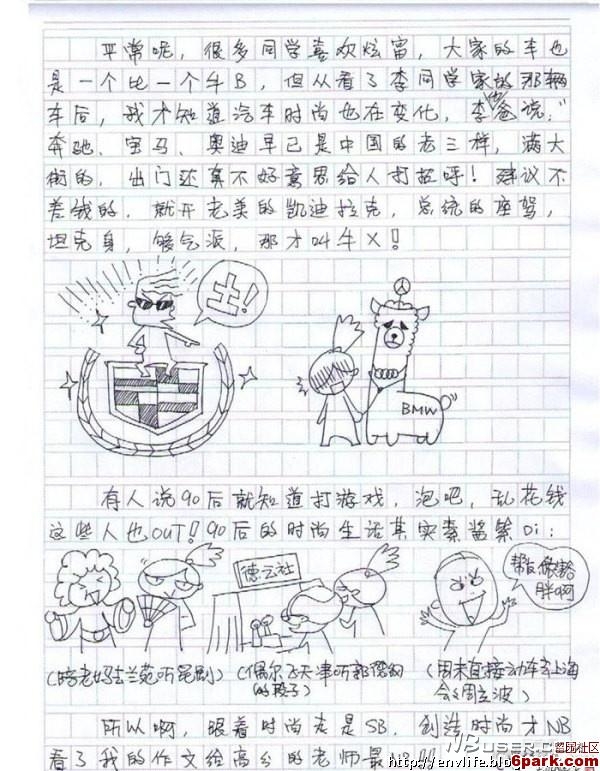 平常呢，很多同学喜欢炫富，大家的车也
是一个比一个牛B，但从看了李同学家的那辆
车后，我才知道汽车时尚也在变化，李爸说，"
奔驰、宝马、奥迪早已是中国的老三样，满大
街的，出门还真不好意思给人打招呼！建议不
差钱的，就开老美的凯迪拉克，总统的座驾，
坦克身，够气派，那才叫牛X！
土！
BMW
有人说90后就知道打游戏，泡吧，乱花钱
这些人也OUT！90后的时尚生活其实素酱紫Di：
德云社
帮
胖啊
(陪老妈去兰苑听昆剧)
(偶尔飞天津听郭德纲
的段子)
(周末直接动车去上海
会会周立波)
所以啊，跟着时尚走是SB，创造时尚才NB
看了我的作文给高分的老师最
NBuser.co
http://envlife.blo
留园社区
6park.com